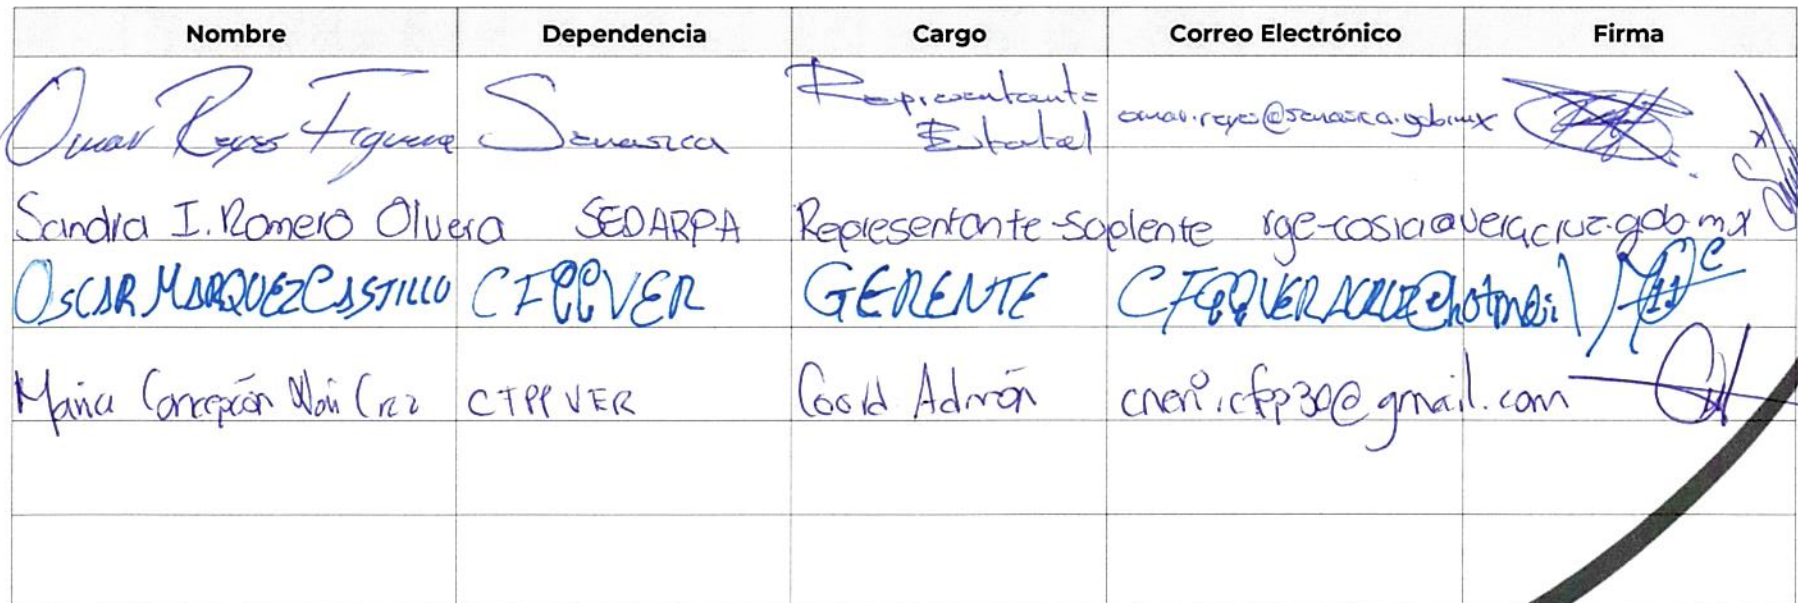 Nombre Dependencia Cargo Correo Electrónico Firma
Omar Reyes Figueroa Senasica Representante
Estatal omar.reyes@senasica.gob.mx
Sandra I. Romero Olvera SEDARPA Representante-Soplente rge-cosia@veracruz.gob.mx
OSCAR MARQUEZ CASTILLO CFPPVER GERENTE CFPPVERACRUZ@hotmail
María Concepción CFPPVER Coord Admón @gmail.com